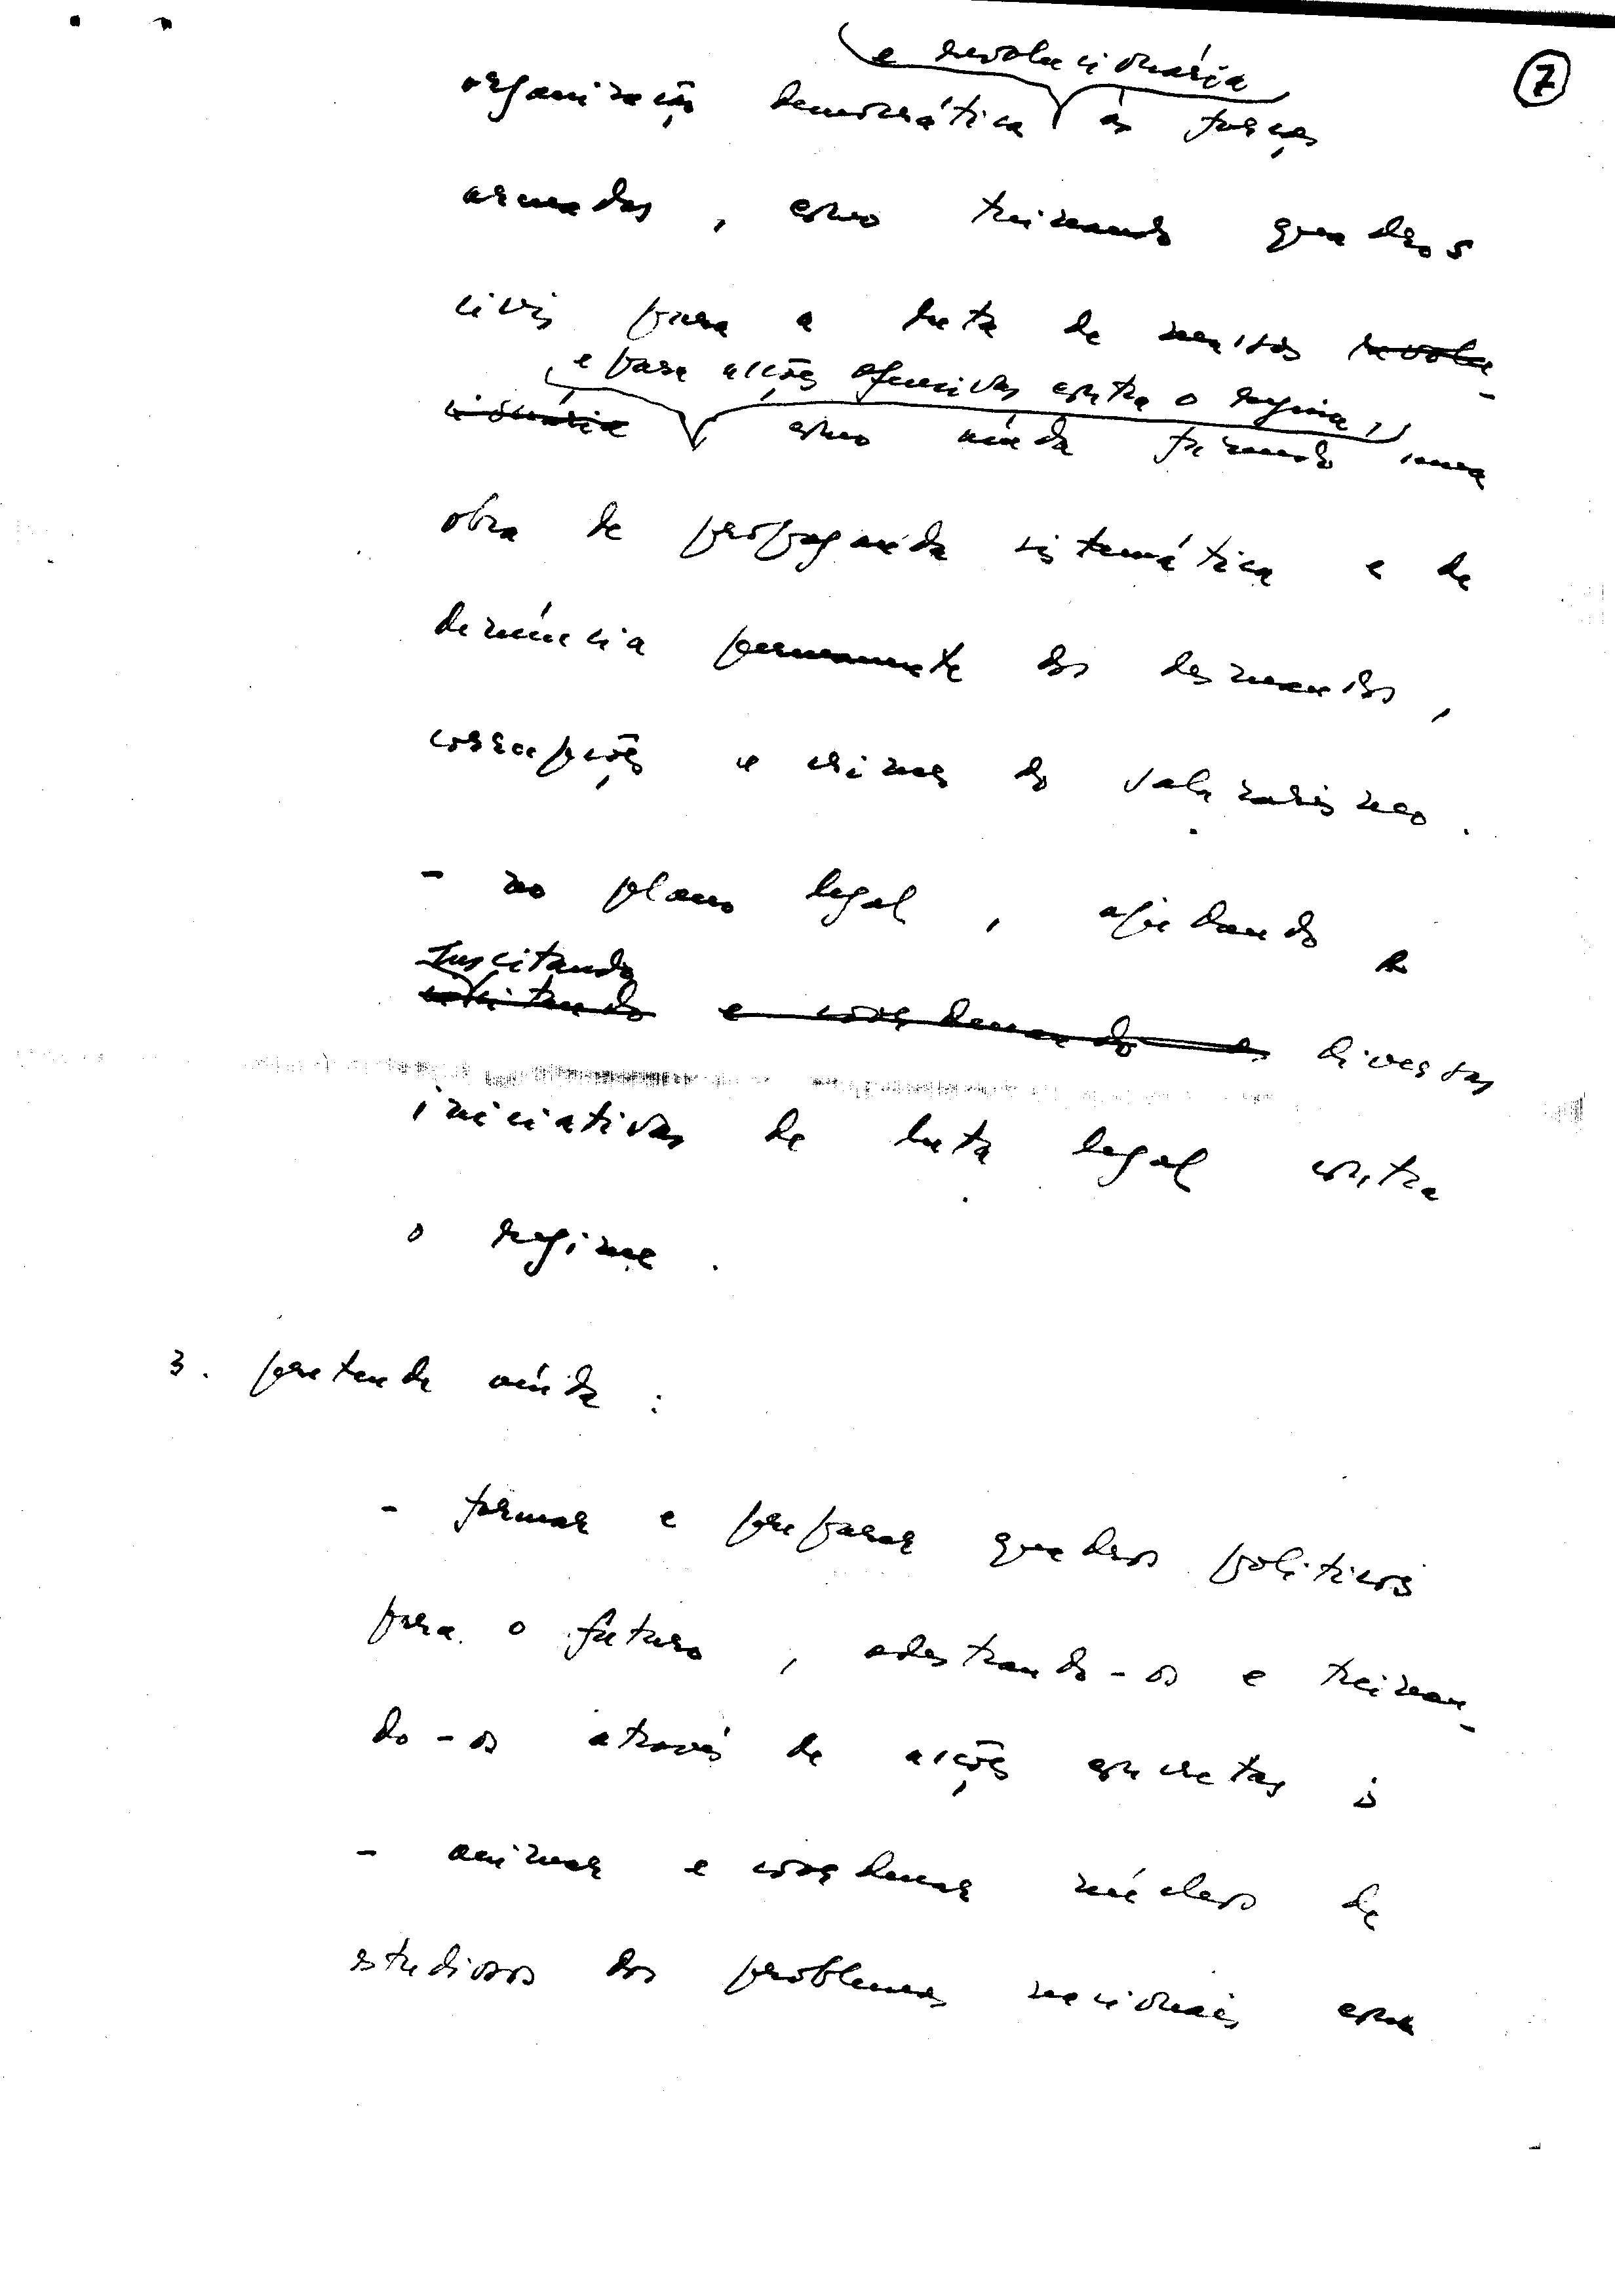 7
e revolucionária
organização democrática às forças
armadas, como treinando quadros
civis para a luta de massas revolu-
e para acções ofensivas contra o regime,
cionária como ainda fazendo uma
obra de propaganda sistemática e de
denúncia permanente dos desmandos,
corrupções e crimes do salazarismo.
- no plano legal, ajudando
suscitando
e coordenando as diversas
iniciativas de luta legal contra
o regime.
3. pretende ainda:
- formar e preparar quadros politicos
para o futuro, adestrando-os e treinan-
do-os através de acções concretas;
- animar e coordenar núcleos de
estudiosos dos problemas nacionais